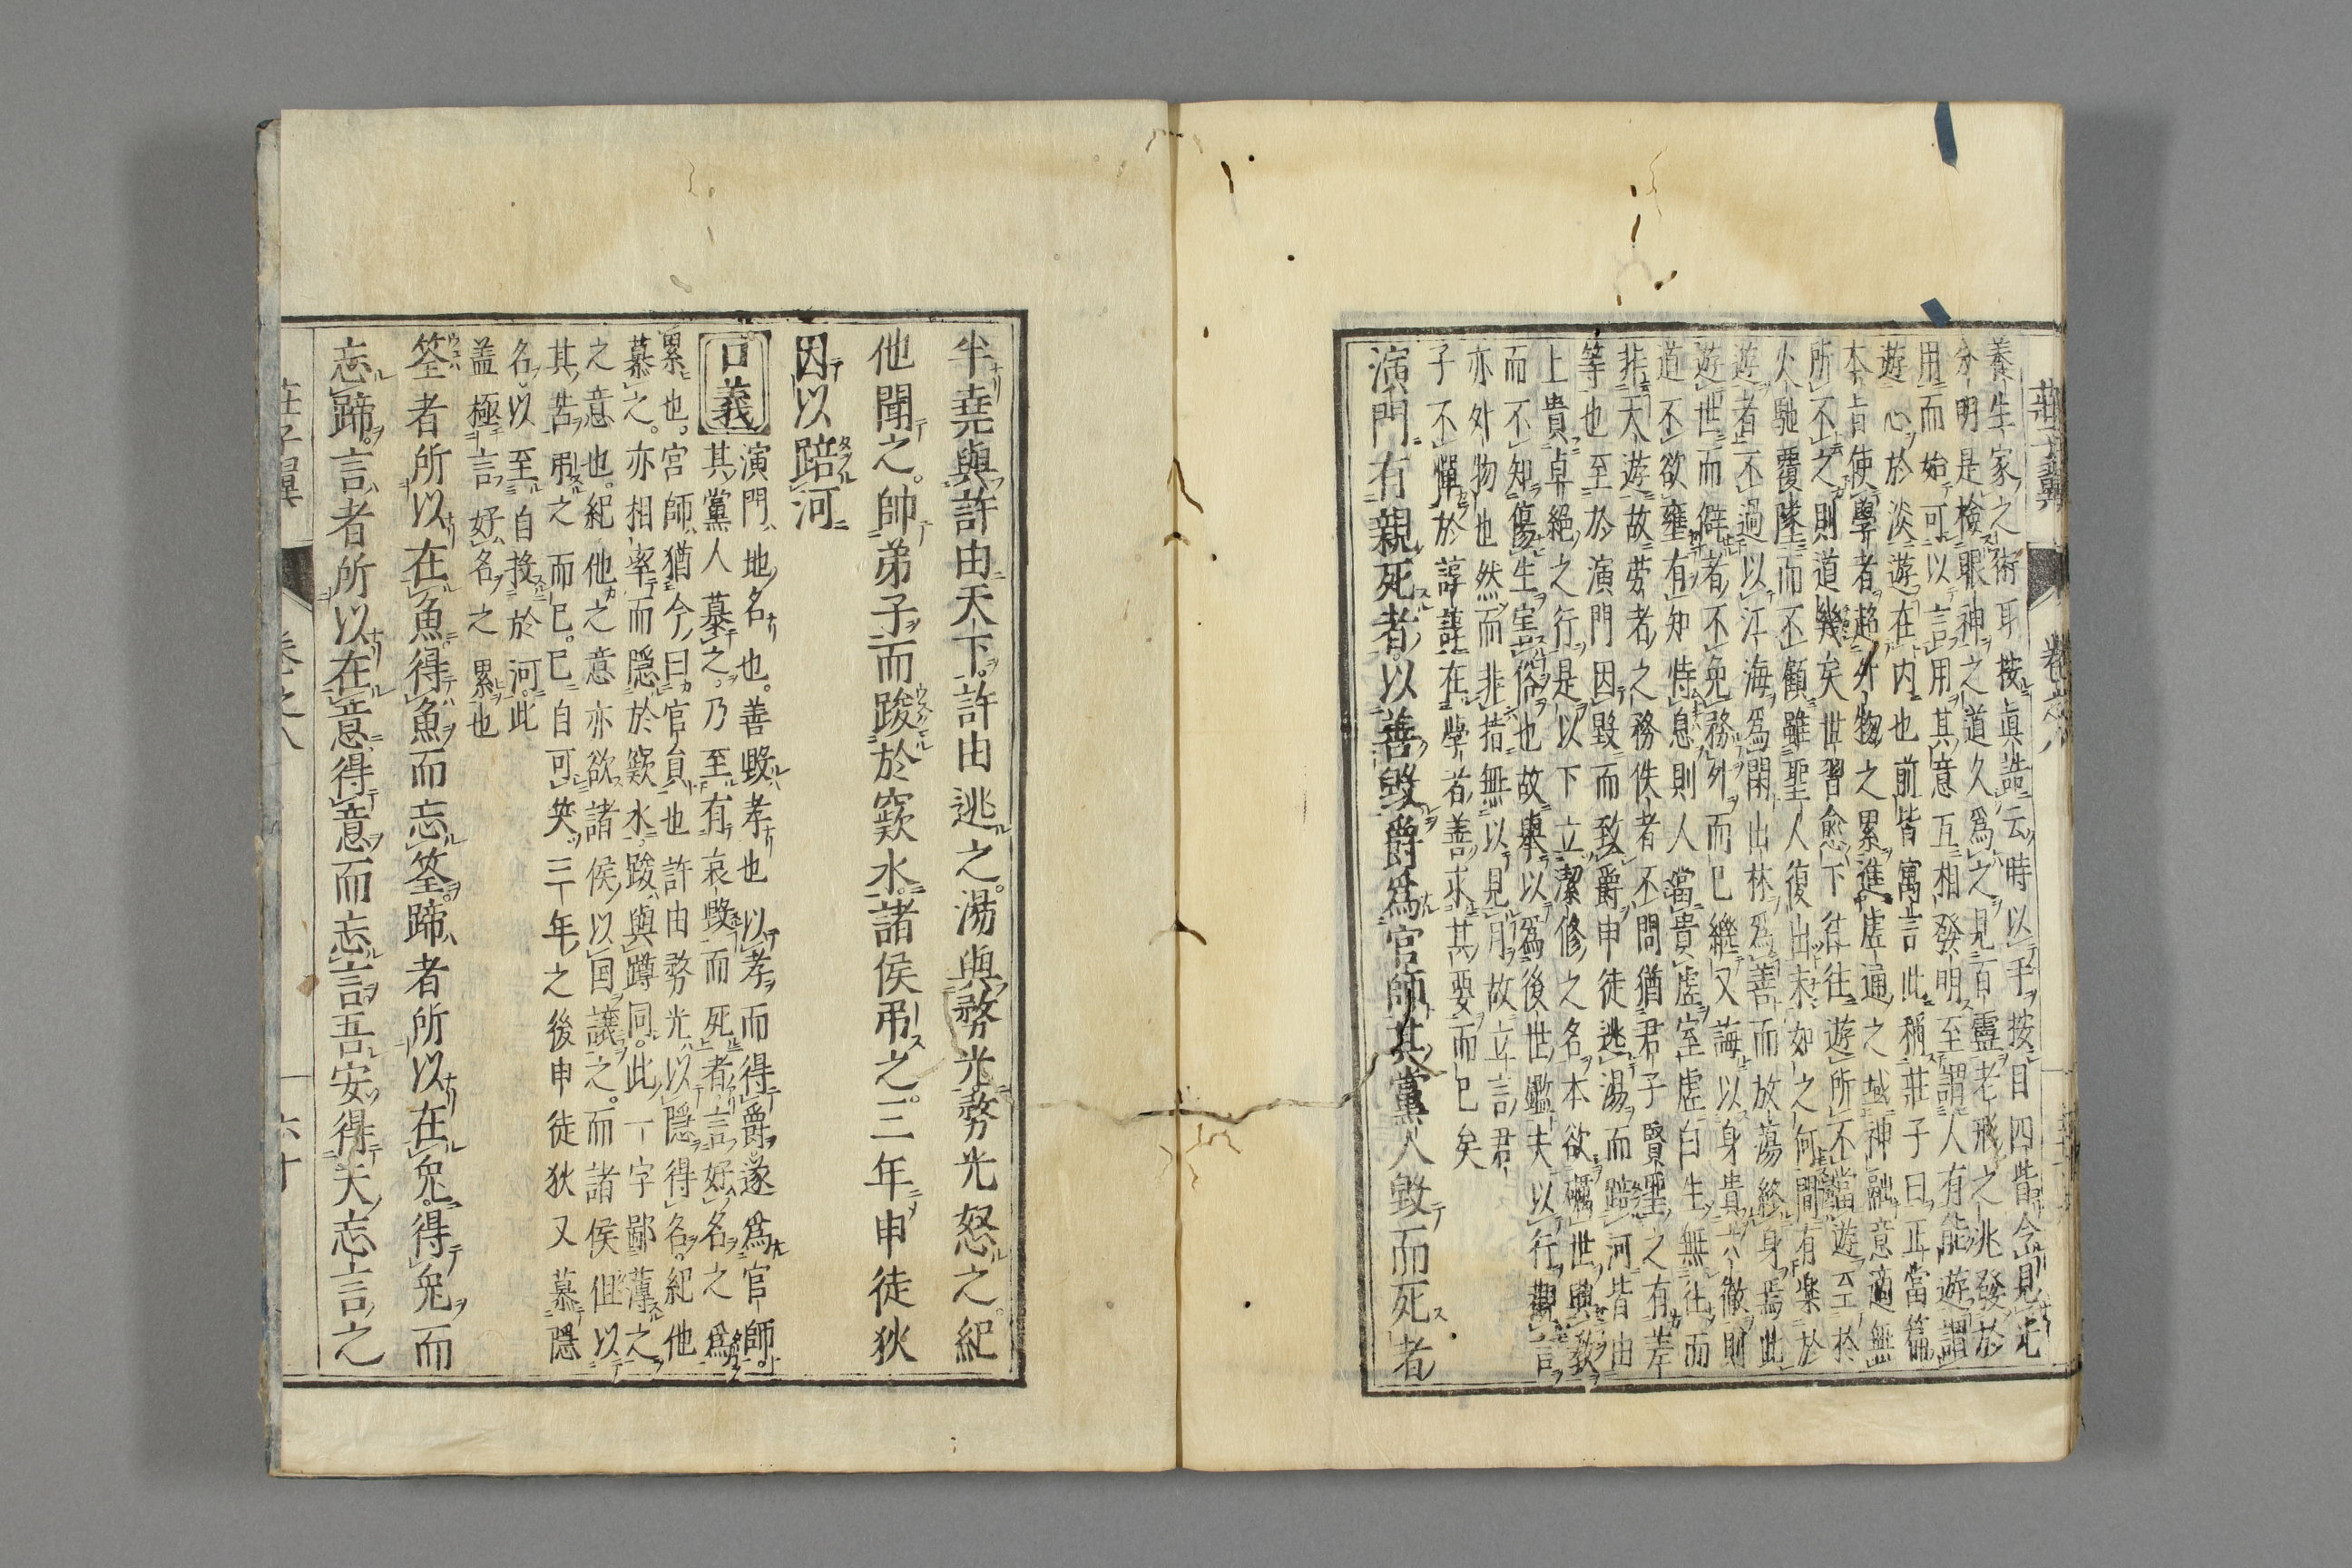 莊子翼
卷六八
養生家之術耳按眞誥云時以手按目四眥令見光
分明是檢眼神之道久爲之見百靈老飛之兆發於
用而始可以言用其意互相發明至謂人有能遊謂
遊心於淡遊在内也前皆寓言此稱莊子曰正當篇
本旨使學者超外物之累進虛通之域神融意適無
所不之則道幾矣世習愈下往往遊所不當遊至於
火馳覆墜而不顧雖聖人復出末如之何間有樂於
遊者不過以江海爲閑山林爲善而放蕩終身焉此
遊世而僻者不免務外而已繼又誨以身貴六徹則
道不欲壅有知恃息則人當貴虛室虛白生無往而
非天遊故勞者之務佚者不問猶君子賢聖之有差
等也至於演門因毀而致爵申徒逃湯而踣河皆由
上貴卓絶之行是以下立潔修之名本欲礪世興敎
而不知傷生害俗也故擧以爲後世鑑夫以行觀言
亦外物也然而非指無以見月故立言君
子不憚於諄諄在學者善求其要而已矣
演門有親死者以善毀爵爲官師其黨人毀而死者
半堯與許由天下許由逃之湯與務光務光怒之紀
他聞之帥弟子而踆於窾水諸侯弔之三年申徒狄
因以踣河
口義 演門地名也善毀孝也以孝而得爵遂爲官師
其黨人慕之乃至有哀毀而死者言好名之爲
累也官師猶今曰官員也許由務光以隱得名紀他
慕之亦相率而隱於窾水踆與蹲同此一字鄙薄之
之意也紀他之意亦欲諸侯以國讓之而諸侯但以
其苦弔之而已已自可笑三年之後申徒狄又慕隱
名以至自投於河此
盖極言好名之累也
筌者所以在魚得魚而忘筌蹄者所以在兔得兔而
忘蹄言者所以在意得意而忘言吾安得夫忘言之
莊子翼
卷之八
六十